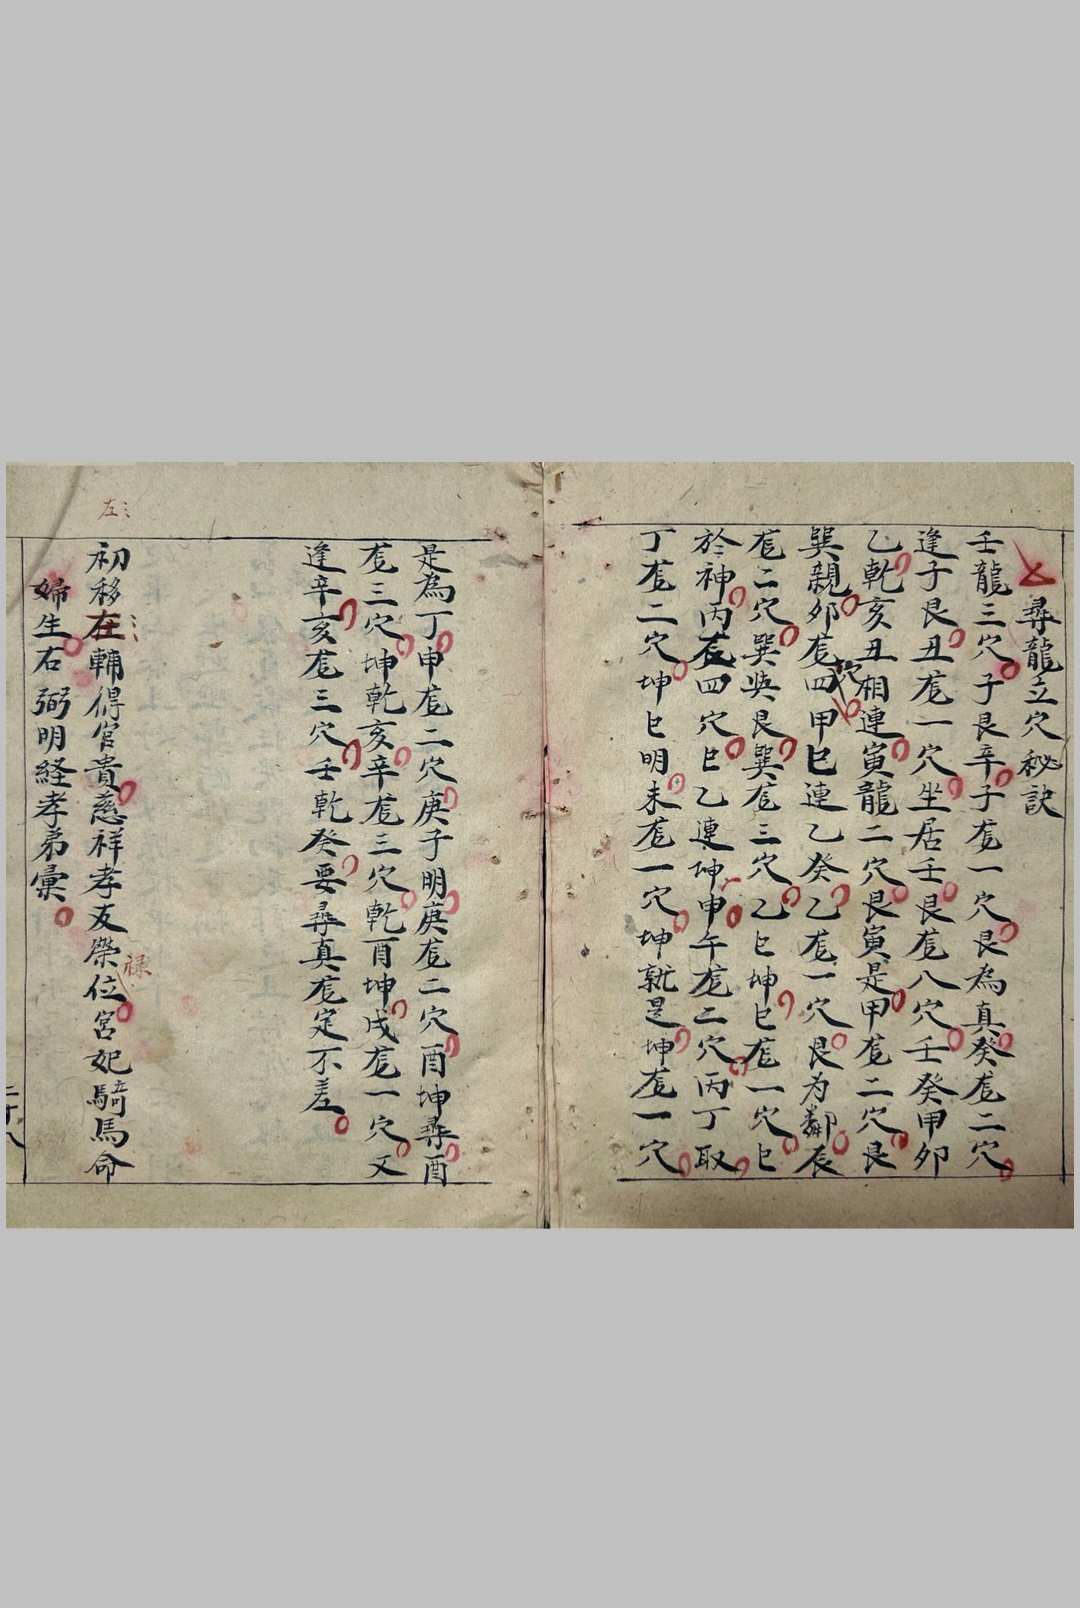 尋龍立穴秘訣
壬龍三穴子艮辛子龙一穴艮為真癸龙二穴
逢子艮丑龙一穴坐居壬艮龙八穴壬癸甲卯
乙乾亥丑相連寅龍二穴艮寅是甲龙二穴艮
巽親卯龙四穴甲巳連乙癸乙龙一穴艮为鄰辰
龙二穴巽與艮巽龙三穴乙巳坤巳龙一穴巳
於神丙龙四穴巳乙連坤申午龙二穴丙丁取
丁龙二穴坤巳明未龙一穴坤就是坤龙一穴
是為丁申龙二穴庚子明庚龙二穴酉坤尋酉
龙三穴坤乾亥辛龙三穴乾酉坤戌龙一穴又
逢辛亥龙三穴壬乾癸要尋真龙定不差
左
初移在輔得官貴慈祥孝友榮位宮妃騎馬命
禄
婦生右弼明経孝弟彙
二十八